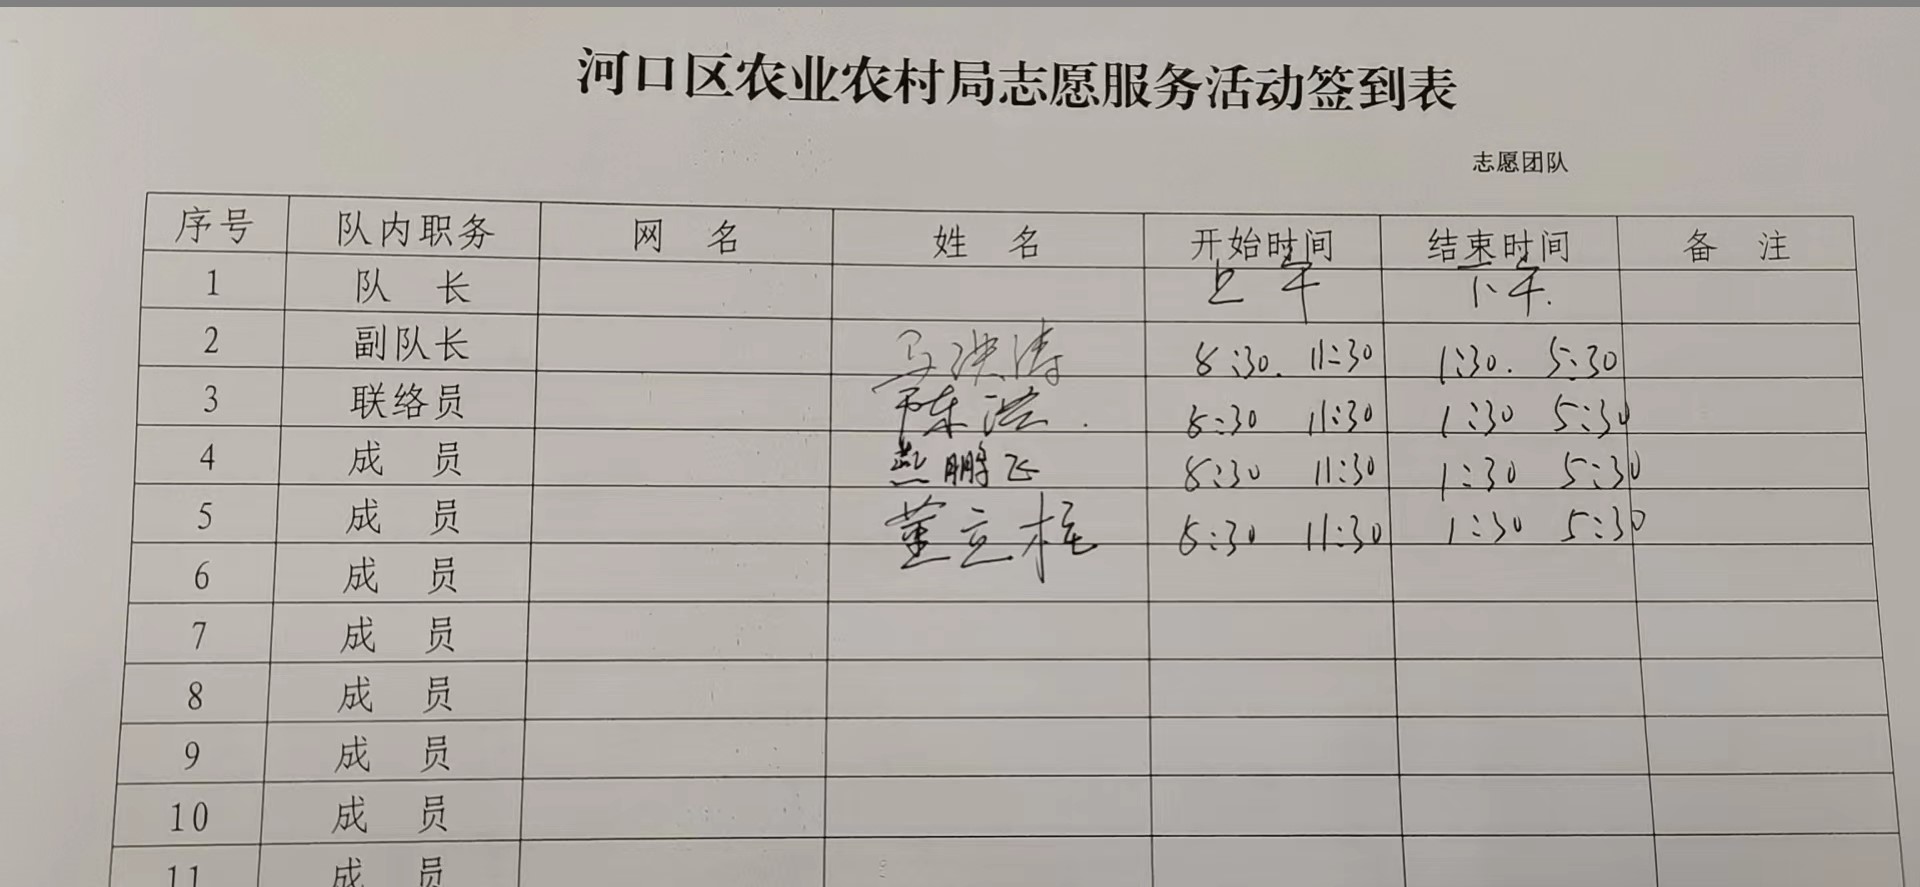 河口区农业农村局志愿服务活动签到表
志愿团队
序号 队内职务 网 名 姓 名 开始时间 结束时间 备 注
1 队 长 上午 下午.
2 副队长 马洪涛 8:30. 11:30 1:30. 5:30
3 联络员 陈洪. 8:30 11:30 1:30 5:30
4 成 员 燕鹏飞 8:30 11:30 1:30 5:30
5 成 员 董立柱 8:30 11:30 1:30 5:30
6 成 员
7 成 员
8 成 员
9 成 员
10 成 员
11 成 员